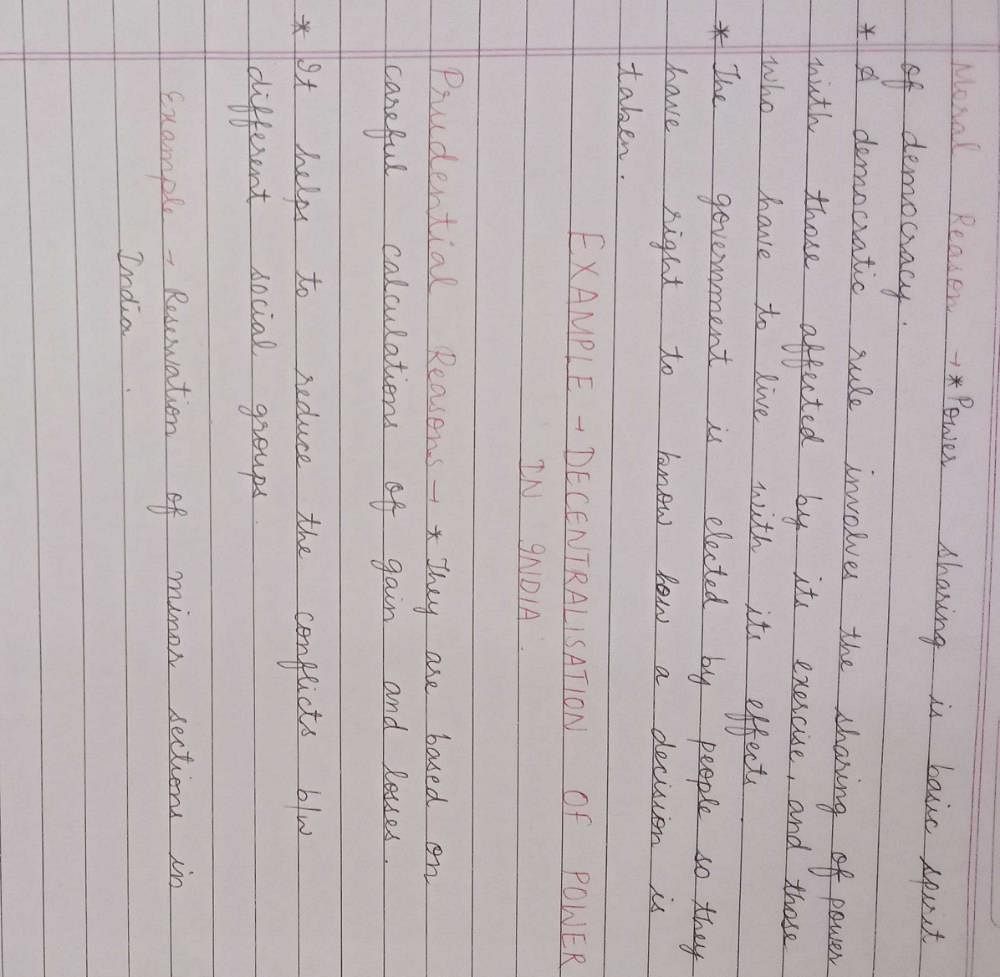 Moral Reason → * Power sharing is basic spirit
of democracy.
* A democratic rule involves the sharing of power
with those affected by its exercise, and those
who have to live with its effects
* The government is elected by people so they
have right to know how a decision is
taken.
EXAMPLE → DECENTRALISATION OF POWER
IN INDIA.
Prudential Reasons → * They are based on
careful calculations of gain and losses.
* It helps to reduce the conflicts b/w
different social groups.
Example → Reservation of minor sections in
India.